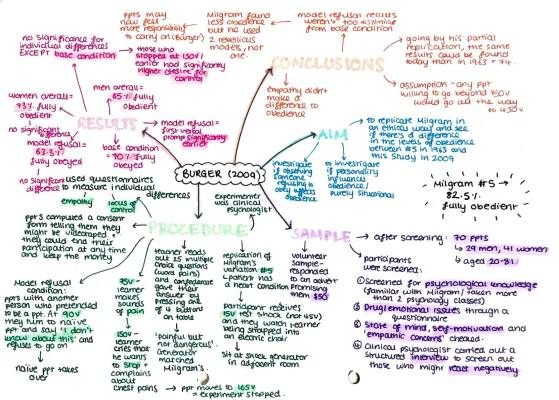 BURGER (2009)
CONCLUSIONS
ppts may
now feel
more responsibility
to carry on (Burger)
Milgram found
less obedience
but he used
2 rebellious
models, not
one.
model refusal results
weren't too dissimilar
from base condition
going by his partial
replication, the same
results could be found
today than in 1963 + 74.
assumption - any ppt
willing to go beyond 150v
would go all the way
to 450v
empathy didn't
make a
difference to
obedience
AIM
to replicate Milgram in
an ethical way and see
if there's a difference
in the levels of obedience
between #5 in 1963 and
this study in 2009
investigate
if observing
someone
refusing to
obey affects
obedience
to investigate
if personality
influences
obedience/
purely situational
Milgram #5 →
82.5%
fully obedient
SAMPLE
after screening: 70 ppts
↳ 29 men, 41 women
↳ aged 20-81.
participants
were screened:
① Screened for psychological knowledge
(familiar with Milgram/taken more
than 2 psychology classes)
② Drug/emotional issues through a
questionnaire
③ State of mind, self-motivation and
'empathic concerns' checked.
④ Clinical psychologist carried out a
structured interview to screen out
those who might react negatively
volunteer
sample -
responded
to an advert
promising
them $50
PROCEDURE
experimenter
was clinical
psychologist
replication of
Milgram's
variation #5
↳ patient has
a heart condition
participant receives
15v test shock (not 45v)
and they watch learner
being strapped into
an electric chair
sit at shock generator
in adjacent room
teacher reads
out 25 multiple
choice questions
(word pairs)
and confederate
gave their
answer by
pressing one
of 4 buttons
on table
'painful but
not dangerous'.
Generator
matched
Milgram's.
75v -
learner
makes
sounds
of pain
150v -
learner
cries that
he wants
to stop +
complains
about
chest pains → ppt moves to 165v
= experiment stopped.
used questionnaires
to measure individual
differences
empathy
locus of
control
ppt's completed a consent
form telling them they
might be videotaped +
they could end their
participation at any time
and keep the money
Model refusal
condition:
ppts with another
person who pretended
to be a ppt. At 90v
they turn to naive
ppt and say 'I don't
know about this' and
refuses to go on
naive ppt takes
over
RESULTS
no significance for
individual differences
EXCEPT base condition
those who
stopped at 150v/
earlier had significantly
higher desire for
control
men overall =
65% fully
obedient
women overall =
73% fully
obedient
no significant
difference
model refusal =
63.3%
fully obeyed
no significant
difference
base
condition =
70% fully
obeyed
model refusal =
first verbal
prompt significantly
earlier